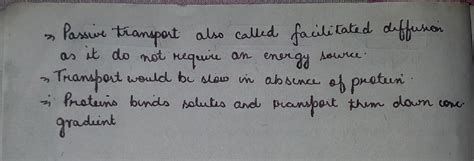 ⇒ Passive transport also called facilitated diffusion
as it do not require an energy source.
⇒ Transport would be slow in absence of protein.
⇒ Proteins binds solutes and transport them down conc
gradient